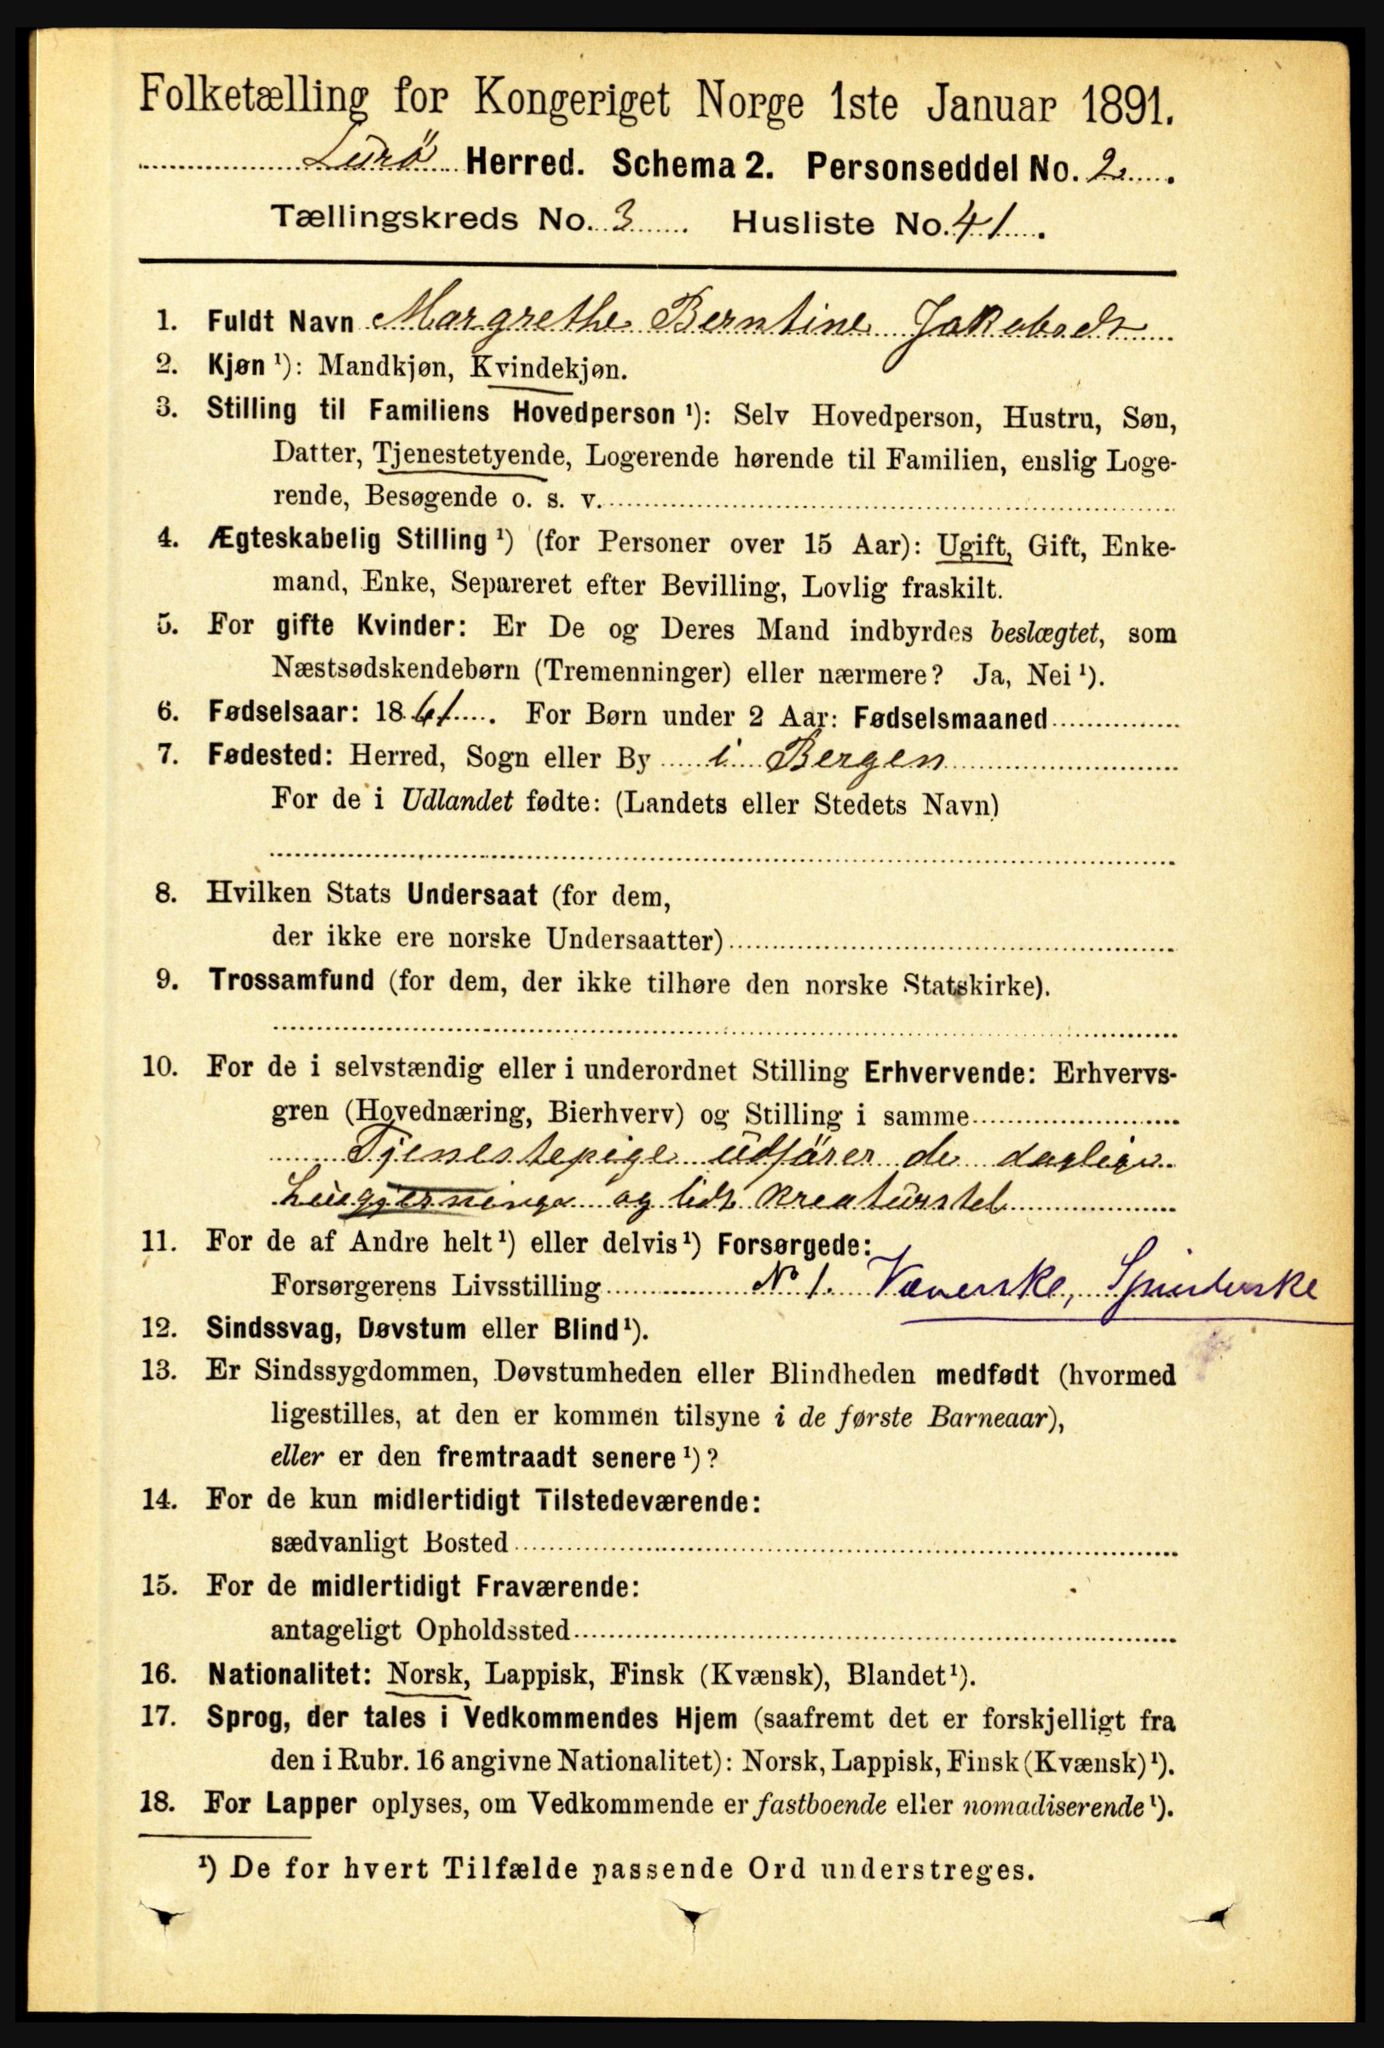 Folketælling for Kongeriget Norge 1ste Januar 1891.
Lurö Herred. Schema 2. Personseddel No. 2.
Tællingskreds No. 3. Husliste No. 41.
1. Fuldt Navn Margrethe Berntine Jakobsdt
2. Kjøn ¹): Mandkjøn, Kvindekjøn.
3. Stilling til Familiens Hovedperson ¹): Selv Hovedperson, Hustru, Søn,
Datter, Tjenestetyende, Logerende hørende til Familien, enslig Loge-
rende, Besøgende o. s. v.
4. Ægteskabelig Stilling ¹) (for Personer over 15 Aar): Ugift, Gift, Enke-
mand, Enke, Separeret efter Bevilling, Lovlig fraskilt.
5. For gifte Kvinder: Er De og Deres Mand indbyrdes beslægtet, som
Næstsødskendebørn (Tremenninger) eller nærmere? Ja, Nei ¹).
6. Fødselsaar: 1861. For Børn under 2 Aar: Fødselsmaaned
7. Fødested: Herred, Sogn eller By i Bergen
For de i Udlandet fødte: (Landets eller Stedets Navn)
8. Hvilken Stats Undersaat (for dem,
der ikke ere norske Undersaatter)
9. Trossamfund (for dem, der ikke tilhøre den norske Statskirke).
10. For de i selvstændig eller i underordnet Stilling Erhvervende: Erhvervs-
gren (Hovednæring, Bierhverv) og Stilling i samme
Tjenestepige udförer de daglige
og lidt kreaturstel
11. For de af Andre helt ¹) eller delvis ¹) Forsørgede:
Forsørgerens Livsstilling No 1. Væverske, Spinderske
12. Sindssvag, Døvstum eller Blind ¹).
13. Er Sindssygdommen, Døvstumheden eller Blindheden medfødt (hvormed
ligestilles, at den er kommen tilsyne i de første Barneaar),
eller er den fremtraadt senere ¹)?
14. For de kun midlertidigt Tilstedeværende:
sædvanligt Bosted
15. For de midlertidigt Fraværende:
antageligt Opholdssted
16. Nationalitet: Norsk, Lappisk, Finsk (Kvænsk), Blandet ¹).
17. Sprog, der tales i Vedkommendes Hjem (saafremt det er forskjelligt fra
den i Rubr. 16 angivne Nationalitet): Norsk, Lappisk, Finsk (Kvænsk) ¹).
18. For Lapper oplyses, om Vedkommende er fastboende eller nomadiserende ¹).
¹) De for hvert Tilfælde passende Ord understreges.